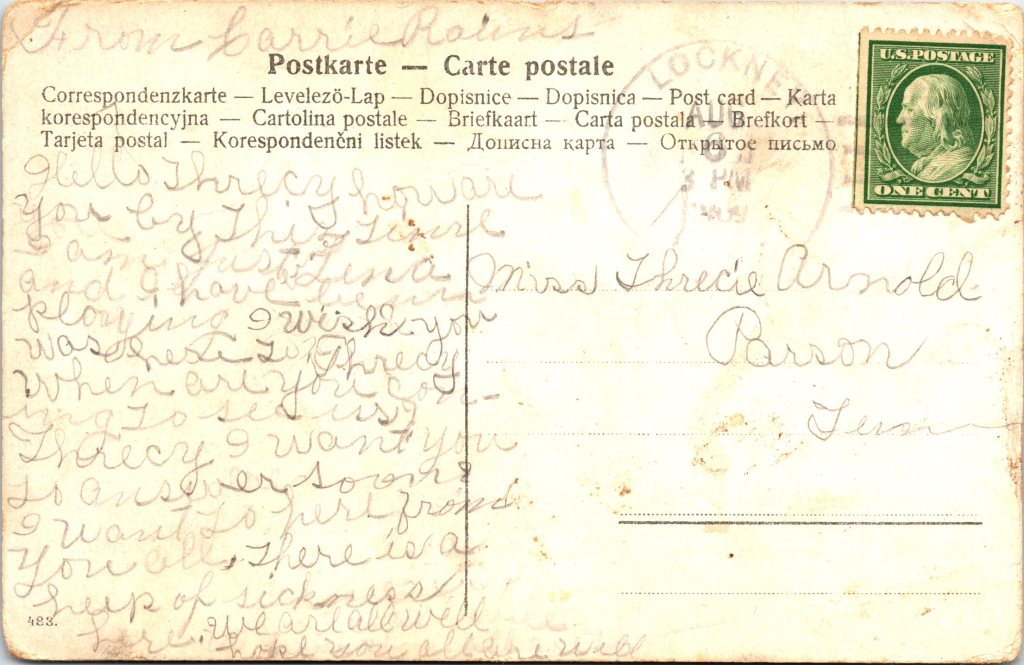 From Carrie Rains
Postkarte — Carte postale
Correspondenzkarte — Levelező-Lap — Dopisnice — Dopisnica — Post card — Karta
korespondencyjna — Cartolina postale — Briefkaart — Carta postala — Brefkort —
Tarjeta postal — Korespondenčni listek — Дописна карта — Открытое письмо
LOCKNEY
AUG
6
3 PM
1909
U.S. POSTAGE
ONE CENT
Hello Threcy how are
you by This Time
I am Just
and I have been
playing I wish you
was here to Threcy
When are you com-
ing To see us?
Threcy I want you
To answer soon
I want To here from
You all, There is a
heep of sickness
here. we are all well
hope you all are well
Miss Threcie Arnold
Parson
Tenn
483.